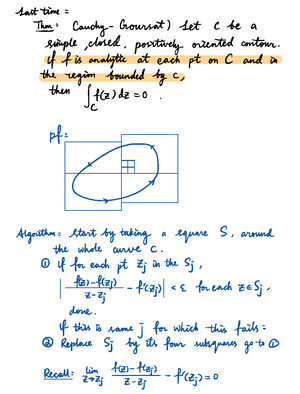 Last time :
Thm : Cauchy-Goursat) Let C be a
simple, closed, positively oriented contour.
if f is analytic at each pt on C and in
the region bounded by C,
then ∫_C f(z) dz = 0 .
pf :
Algorithm : start by taking a square S, around
the whole curve C.
① if for each pt Zj in the Sj,
| (f(z) - f(zj))/(z - zj) - f'(zj) | < ε for each z ∈ Sj ,
done.
If this is same j for which this fails :
② Replace Sj by its four subsquares go to ①
Recall : lim_{z→zj} (f(z) - f(zj))/(z - zj) - f'(zj) = 0